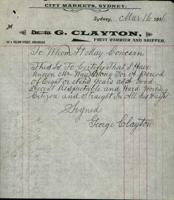 CITY MARKETS, SYDNEY.
Sydney, Mar 16 190
G. CLAYTON,
FRUIT-GROWER AND SHIPPER.
To Whom It May Concern
This Is To Certify That I Have
Known Mr Way Kong For A Period
of Eight or Nine Years as a Good
Decent Respectable and Hard Working
Citizen and Straight In All his Ways
Signed
George Clayton